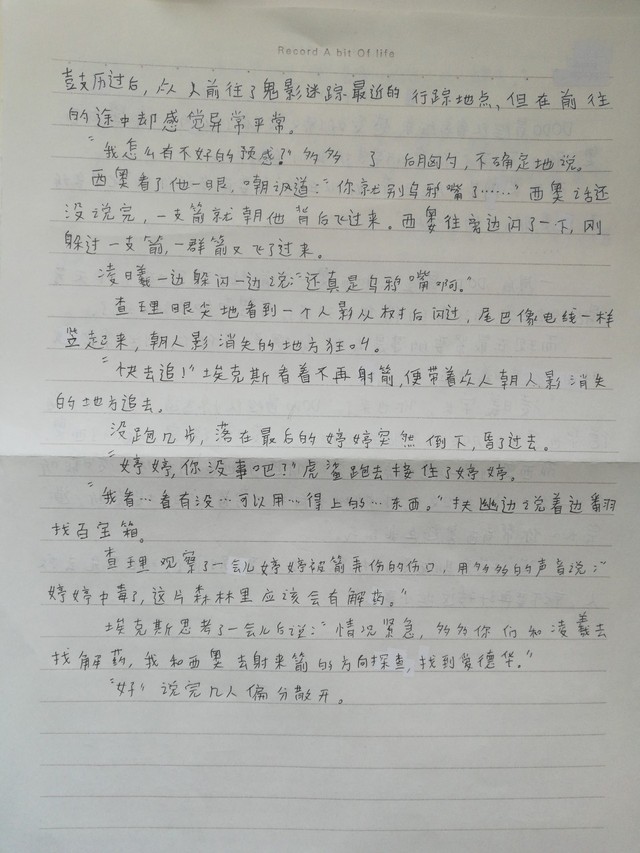 Record A bit Of life
鼓历过后，众人前往了鬼影迷踪最近的行踪地点，但在前往
的途中却感觉异常平常。
“我怎么有不好的预感？”多多 了 后胸勺，不确定地说。
西奥看了他一眼，嘲讽道：“你就别乌鸦嘴了……”西奥话还
没说完，一支箭就朝他背后飞过来。西奥往旁边闪了一下，刚
躲过一支箭，一群箭又飞了过来。
凌曦一边躲闪一边说：“还真是乌鸦嘴啊。”
查理眼尖地看到一个人影从树后闪过，尾巴像电线一样
竖起来，朝人影消失的地方狂叫。
“快去追！”埃克斯看着不再射箭，便带着众人朝人影消失
的地方追去。
没跑几步，落在最后的婷婷突然倒下，晕了过去。
“婷婷，你没事吧？”虎鲨跑去接住了婷婷。
“我看…看有没…可以用…得上的…东西。”扶幽边说着边翻
找百宝箱。
查理观察了一会儿婷婷被箭弄伤的伤口，用多多的声音说：“
婷婷中毒了，这片森林里应该会有解药。”
埃克斯思考了一会儿后说：“情况紧急，多多你们和凌羲去
找解药，我和西奥去射来箭的方向探查，找到爱德华。”
“好”说完几人偏分散开。